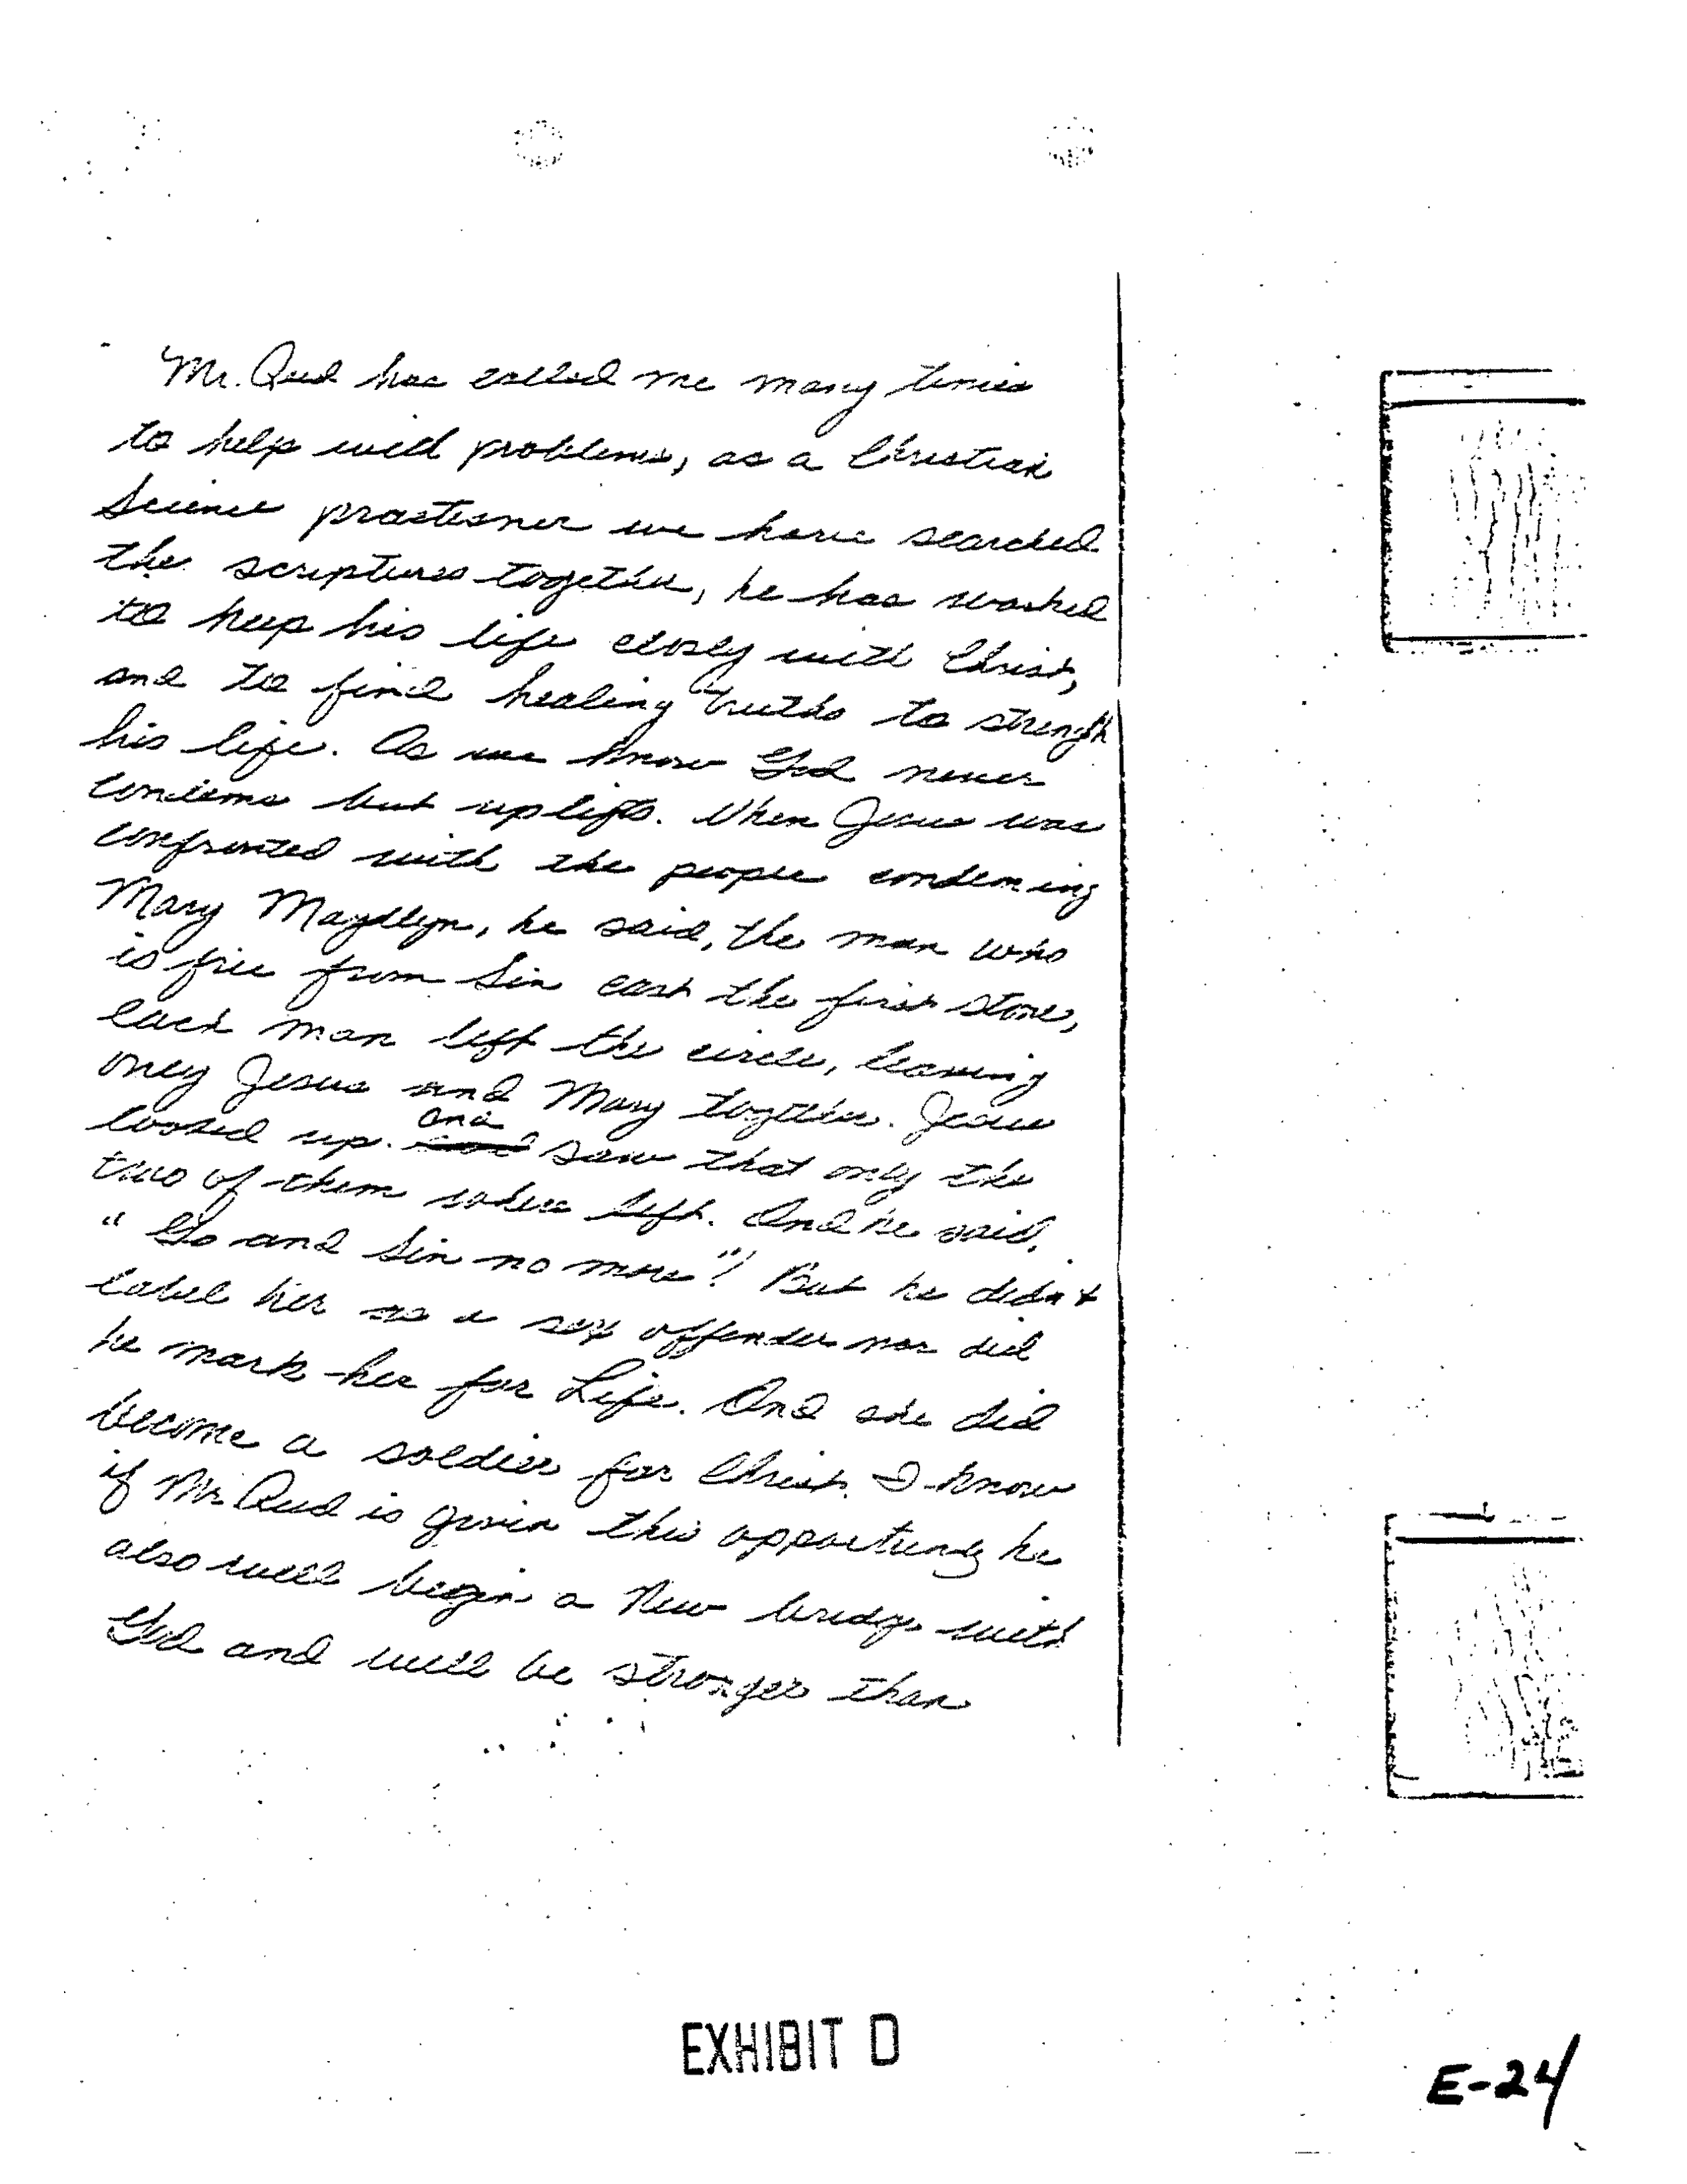 Mr. Aud has called me many times
to help with problems, as a Christian
Science practisner we have searched
the scriptures together, he has worked
to keep his life closly with Christ,
and to find healing truths to strength
his life. As we know God never
condems but uplifts. When Jesus was
confronted with the people condeming
Mary Magdlyn, he said, the man who
is free from Sin cast the first stone,
each man left the circle, leaving
only Jesus and Mary together. Jesus
looked up. and saw that only the
two of them where left. And he said,
"Go and Sin no more"! But he didn't
label her as a sex offender nor did
he mark her for Life. And she did
become a soldier for Christ. I know
if Mr. Aud is given this opportundy he
also will begin a New bridge with
God and will be stronger than
EXHIBIT D
E-24